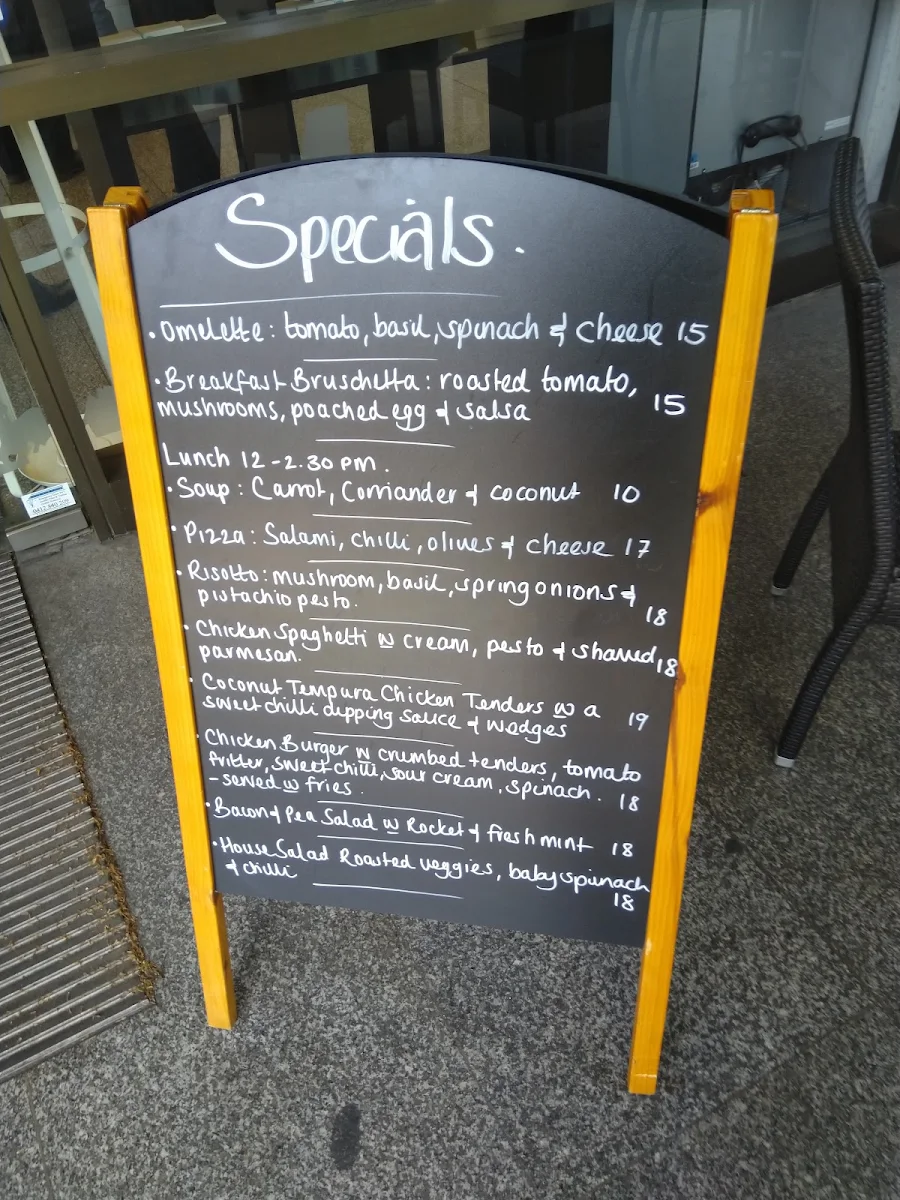 Specials.
• Omelette: tomato, basil, spinach & cheese 15
• Breakfast Bruschetta: roasted tomato,
mushrooms, poached egg & salsa 15
Lunch 12-2.30 PM.
• Soup: Carrot, Corriander & coconut 10
• Pizza: Salami, chilli, olives & cheese 17
• Risotto: mushroom, basil, spring onions &
pistachio pesto. 18
• Chicken Spaghetti w cream, pesto & shaved 18
parmesan.
• Coconut Tempura Chicken Tenders w a
sweet chilli dipping sauce & wedges 19
• Chicken Burger w crumbed tenders, tomato
fritter, sweet chilli, sour cream, spinach. 18
- served w fries.
• Bacon & Pea Salad w Rocket & fresh mint 18
• House Salad Roasted veggies, baby spinach
& chilli 18